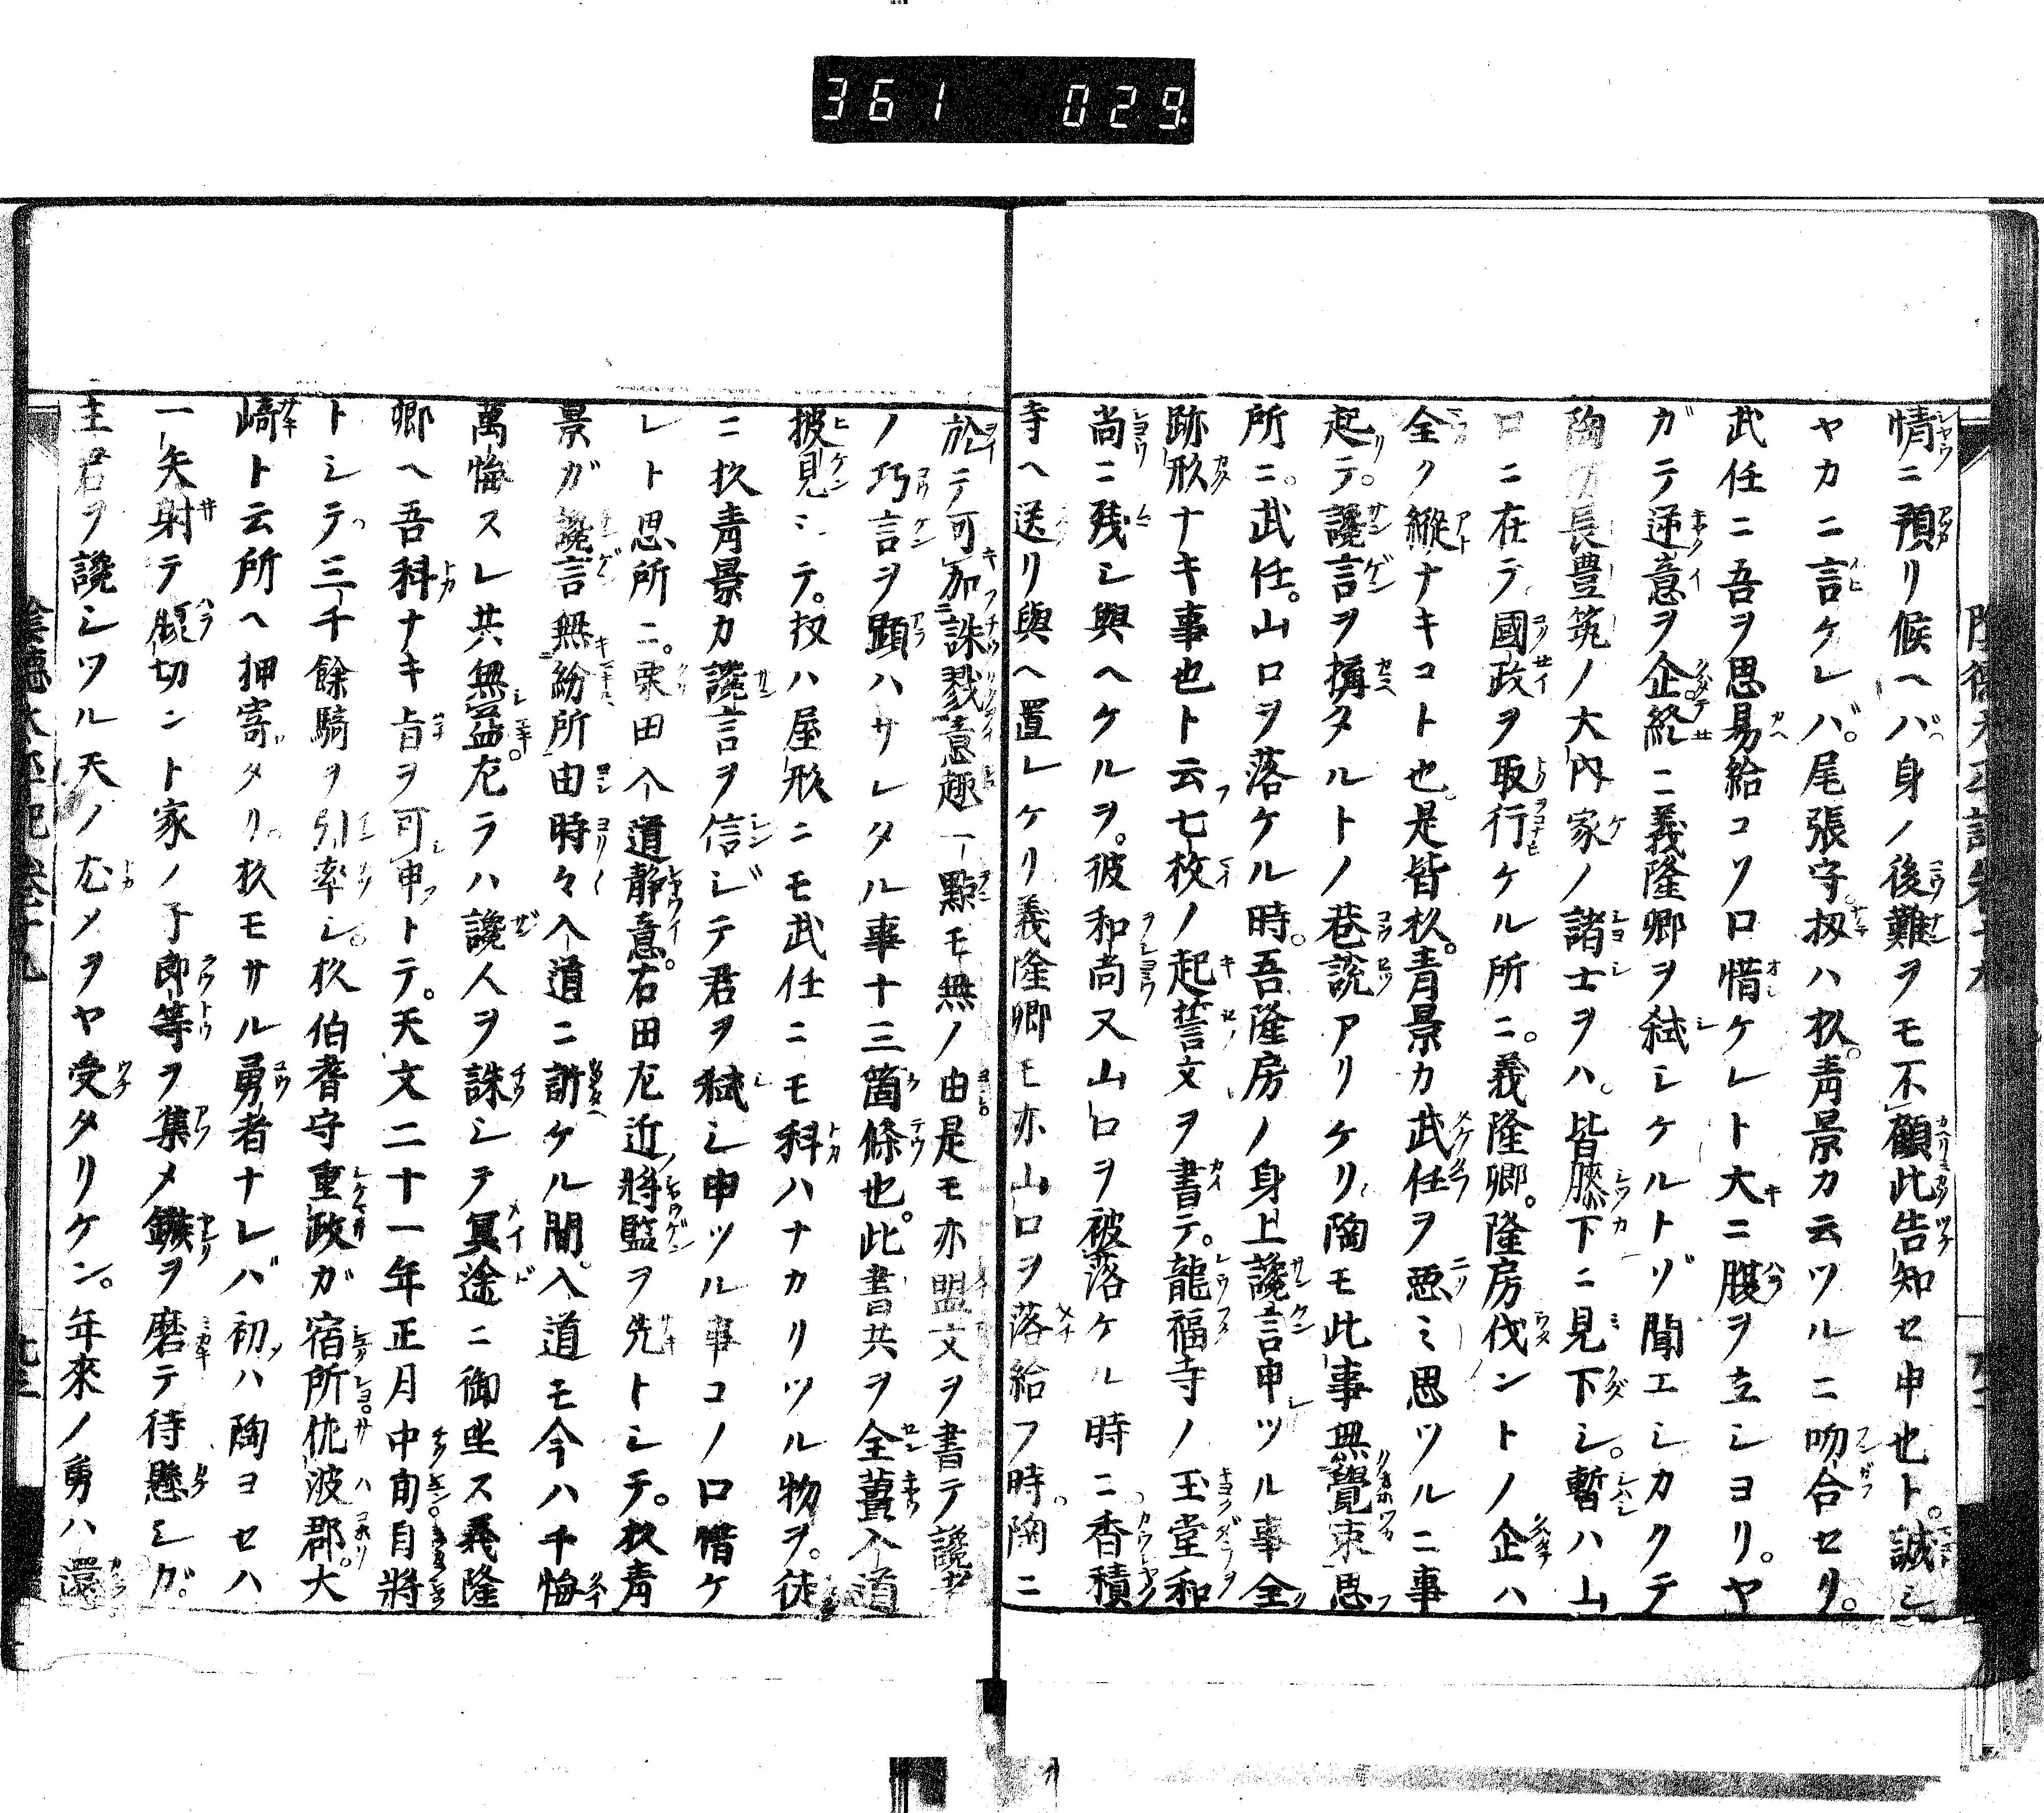 361 029
情ニ預リ候ヘバ身ノ後難ヲモ不顧此告知セ申也ト。誠シ
ヤカニ言ケレバ。尾張守。扨ハ杦。青景カ云ツルニ吻合セリ。
武任ニ吾ヲ思易給コソ口惜ケレト大ニ腹ヲ立シヨリ。ヤ
ガテ逆意ヲ企。終ニ義隆卿ヲ弑シケルトゾ聞エシカクテ
陶カ長豊筑ノ大内家ノ諸士ヲハ。皆膝下ニ見下シ。暫ハ山
口ニ在テ國政ヲ取行ケル所ニ。義隆卿。隆房伐ントノ企ハ
全ク縱ナキコト也。是皆杦。青景カ武任ヲ悪ミ思ツルニ事
起テ。讒言ヲ搆タルトノ巷説アリケリ陶モ此事無覺束思
所ニ。武任。山口ヲ落ケル時。吾隆房ノ身上讒言申ツル事全
跡形ナキ事也ト云七枚ノ起誓文ヲ書テ。龍福寺ノ玉堂和
尚ニ殘シ與ヘケルヲ。彼和尚又山口ヲ被落ケル時ニ香積
寺ヘ送リ與ヘ置レケリ義隆卿モ亦山口ヲ落給フ時陶ニ
於テ可加誅戮意趣一點モ無ノ由是モ亦盟文ヲ書テ讒者
ノ巧言ヲ顕ハサレタル事十三箇條也。此書共ヲ全薑入道
披見シテ。扨ハ屋形ニモ武任ニモ科ハナカリツル物ヲ。徒
ニ杦青景カ讒言ヲ信ジテ君ヲ弑シ申ツル事コノ口惜ケ
レト思所ニ。栗田入道静意。右田左近將監ヲ先トシテ。杦青
景ガ讒言無紛所由時々入道ニ訴ケル間。入道モ今ハ千悔
萬悔スレ共無益。左ラハ讒人ヲ誅シテ冥途ニ御坐ス義隆
卿ヘ吾科ナキ旨ヲ可申トテ。天文二十一年正月中旬自將
トシテ三千餘騎ヲ引率シ。杦伯耆守重政ガ宿所佐波郡。大
﨑ト云所ヘ押寄タリ。杦モサル勇者ナレバ初ハ陶ヨセハ
一矢射テ腹切ント家ノ子郎等ヲ集メ鏃ヲ磨テ待懸シガ。
主君ヲ讒シツル天ノ尤メヲヤ受タリケン。年來ノ勇ハ還